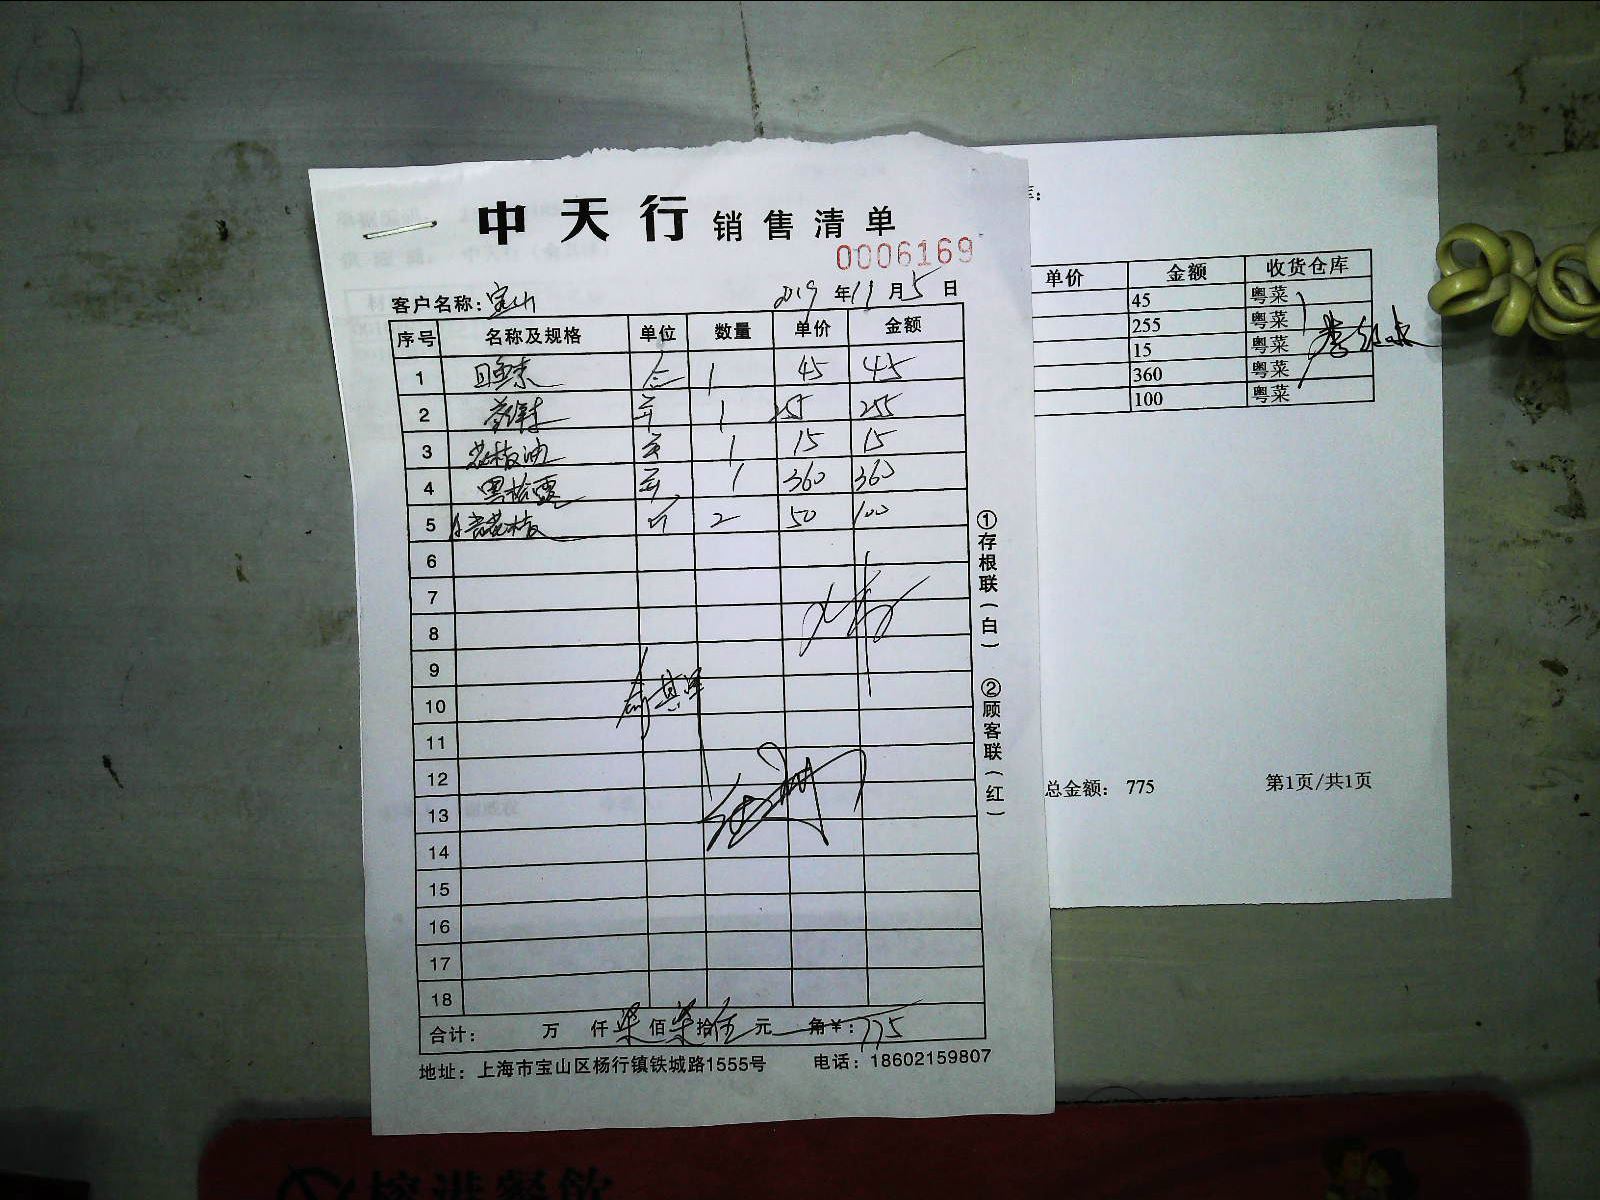 中天行 销售清单
0006169
客户名称: 宝山 2019 年 11 月 5 日
序号 名称及规格 单位 数量 单价 金额
1 1 45 45
2 1 255 255
3 花椒油 1 15 15
4 1 360 360
5 2 50 100
6
7
8
9
10
11
12
13
14
15
16
17
18
合计: 万 仟 柒 佰 柒 拾 伍 元 角 ¥: 775
地址: 上海市宝山区杨行镇铁城路1555号 电话: 18602159807
①存根联(白) ②顾客联(红)
单价 金额 收货仓库
45 粤菜
255 粤菜
15 粤菜
360 粤菜
100 粤菜
总金额: 775 第1页/共1页